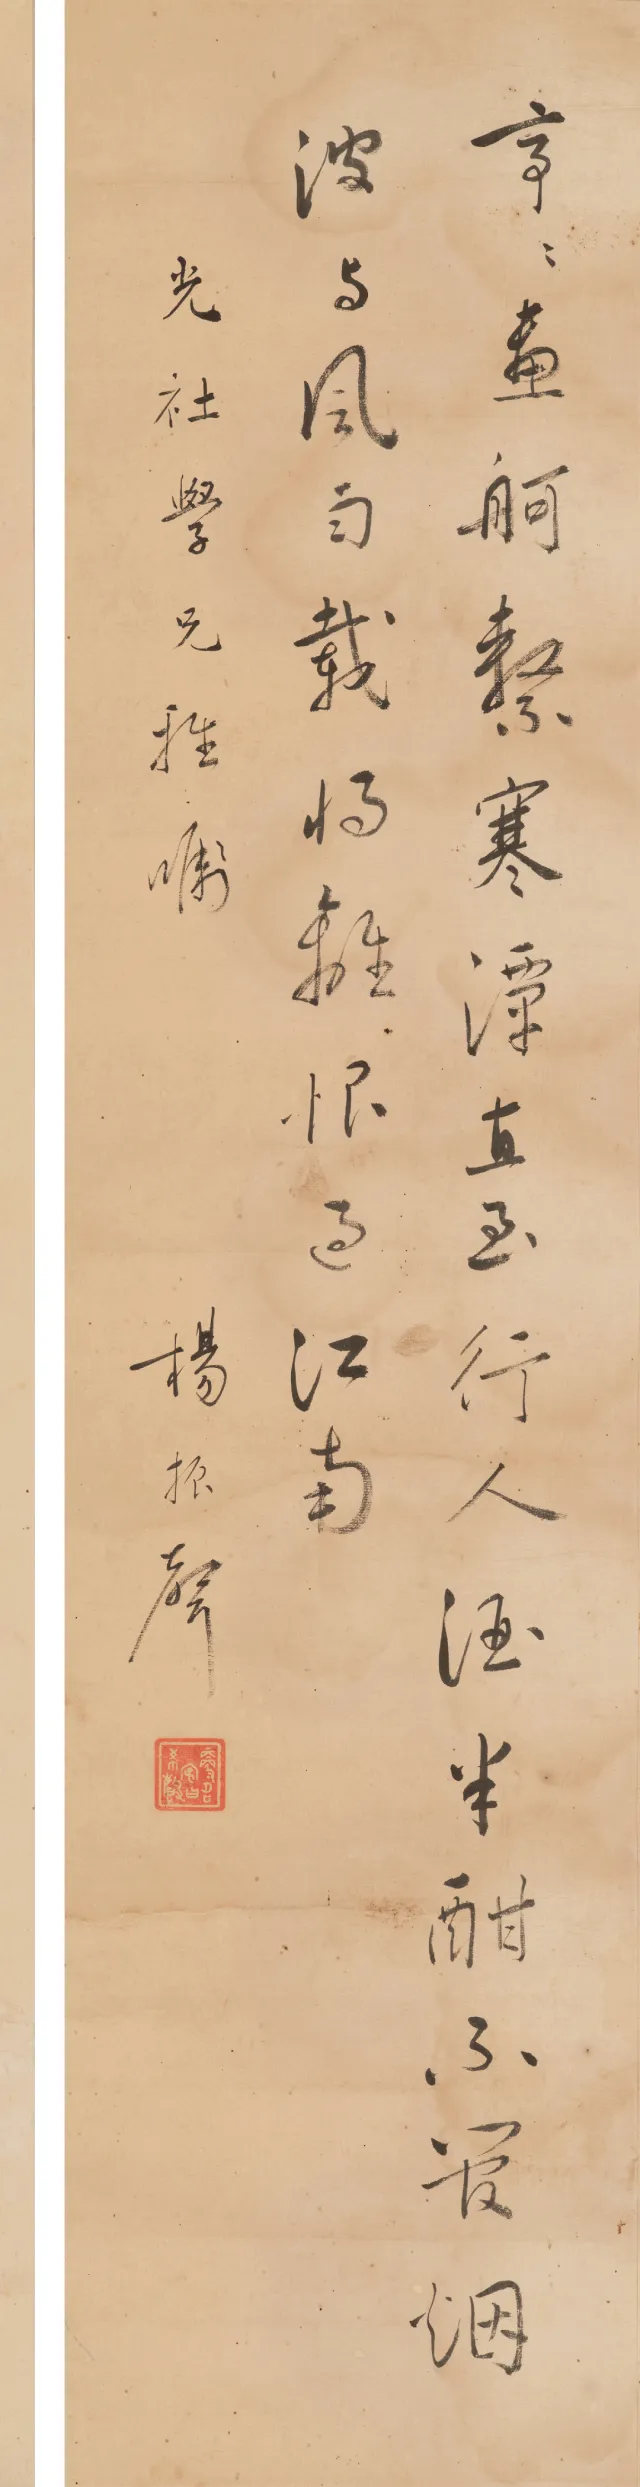 亭〻畫舸繫寒潭直至行人酒半酣不管烟
波与風雨載將離恨過江南
光社學兄雅囑
楊振聲